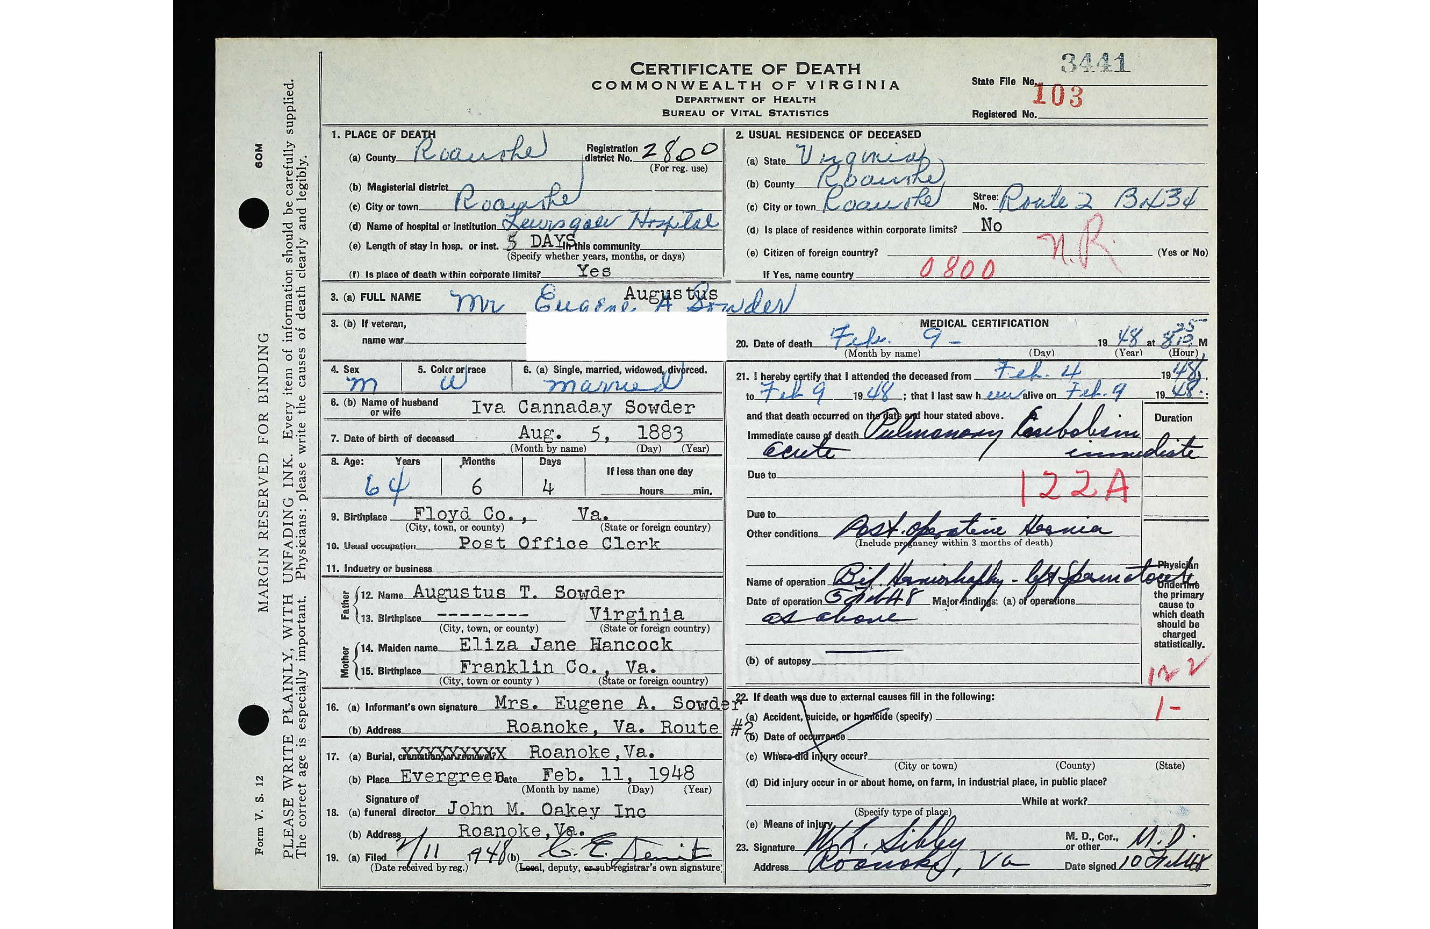 3441
CERTIFICATE OF DEATH
COMMONWEALTH OF VIRGINIA
DEPARTMENT OF HEALTH
BUREAU OF VITAL STATISTICS
State File No.
103
Registered No.
MARGIN RESERVED FOR BINDING
PLEASE WRITE PLAINLY, WITH UNFADING INK. Every item of information should be carefully supplied.
The correct age is especially important. Physicians: please write the causes of death clearly and legibly.
Form V. S. 12
60M
1. PLACE OF DEATH
(a) County Roanoke Registration district No. 2800
(For reg. use)
(b) Magisterial district
(c) City or town Roanoke
(d) Name of hospital or institution Lewisgale Hospital
(e) Length of stay in hosp. or inst. 5 DAYS In this community
(Specify whether years, months, or days)
(f) Is place of death within corporate limits? Yes
2. USUAL RESIDENCE OF DECEASED
(a) State Virginia
(b) County Roanoke
(c) City or town Roanoke Street No. Route 2 Box 34
(d) Is place of residence within corporate limits? No
N.R.
(e) Citizen of foreign country? (Yes or No)
If Yes, name country 0800
Augustus
3. (a) FULL NAME Mr Eugene A Sowder
3. (b) If veteran,
name war
4. Sex M
5. Color or race W
6. (a) Single, married, widowed, divorced. married
6. (b) Name of husband or wife Iva Cannaday Sowder
7. Date of birth of deceased Aug. 5, 1883
(Month by name) (Day) (Year)
8. Age: Years Months Days If less than one day
64 6 4 hours min.
9. Birthplace Floyd Co., Va.
(City, town, or county) (State or foreign country)
10. Usual occupation Post Office Clerk
11. Industry or business
Father
12. Name Augustus T. Sowder
13. Birthplace -------- Virginia
(City, town, or county) (State or foreign country)
Mother
14. Maiden name Eliza Jane Hancock
15. Birthplace Franklin Co., Va.
(City, town or county) (State or foreign country)
16. (a) Informant's own signature Mrs. Eugene A. Sowder
(b) Address Roanoke, Va. Route #2
17. (a) Burial, cremation, or removal XXXXXXXXX Roanoke,Va.
(b) Place Evergreen Date Feb. 11, 1948
(Month by name) (Day) (Year)
18. (a) Signature of funeral director John M. Oakey Inc
(b) Address Roanoke,Va.
19. (a) Filed 2/11 1948 (b) C. E.
(Date received by reg.) (Local, deputy, or sub-registrar's own signature)
MEDICAL CERTIFICATION
20. Date of death Feb. 9 - 1948 at M
(Month by name) (Day) (Year) (Hour)
21. I hereby certify that I attended the deceased from Feb. 4 1948,
to Feb 9 1948; that I last saw him alive on Feb. 9 1948;
and that death occurred on the date and hour stated above.
Duration
Immediate cause of death Pulmonary Embolism
acute immediate
Due to
122A
Due to
Other conditions Post-operative Hernia
(Include pregnancy within 3 months of death)
Name of operation Bil. Herniorhaphy - left Spermatocele
Date of operation 5 Feb 48 Major findings: (a) of operations
as above
(b) of autopsy
Physician
Underline
the primary
cause to
which death
should be
charged
statistically.
122
1-
22. If death was due to external causes fill in the following:
(a) Accident, suicide, or homicide (specify)
(b) Date of occurrence
(c) Where did injury occur?
(City or town) (County) (State)
(d) Did injury occur in or about home, on farm, in industrial place, in public place?
While at work?
(Specify type of place)
(e) Means of injury
23. Signature W. L. Sibley M. D., Cor., or other M.D.
Address Roanoke, Va Date signed 10 Feb 48